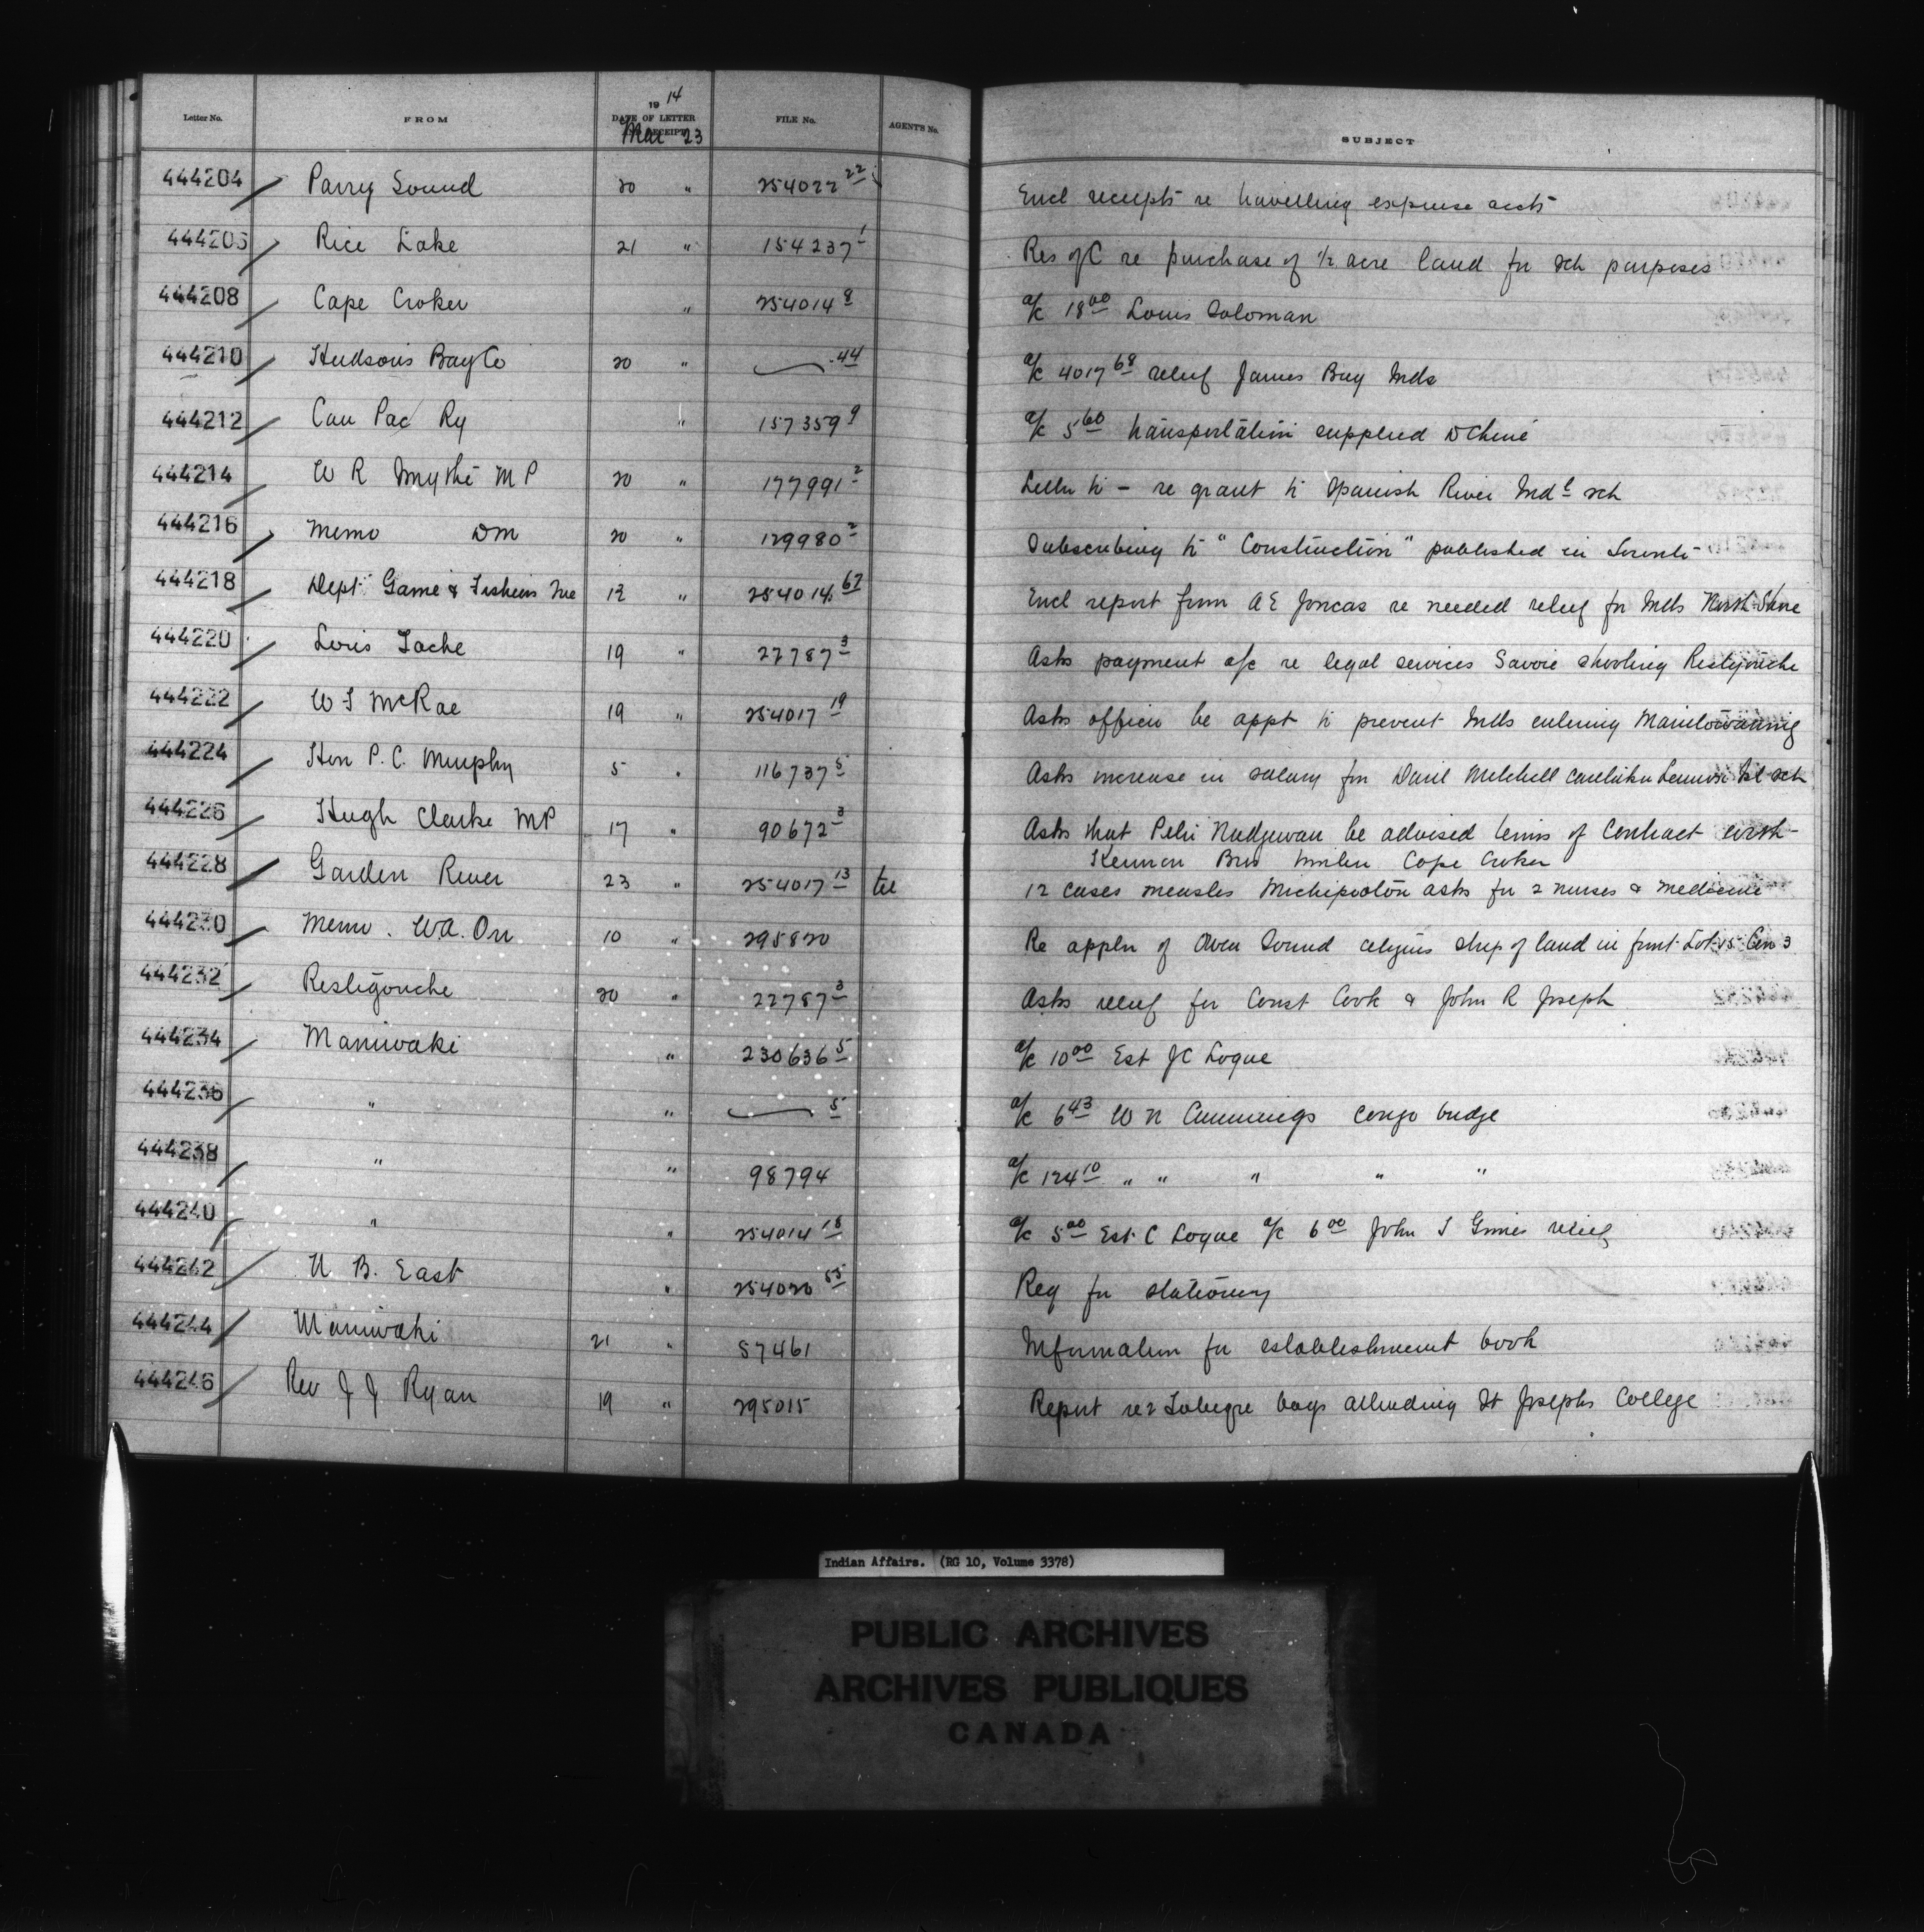 Letter No. FROM 1914 DATE OF LETTER RECEIPT Mar 23 FILE No. AGENT'S No. SUBJECT
444204 Parry Sound 20 " 254022 22 Encl receipts re travelling expense accts
444206 Rice Lake 21 " 154237 1 Res of C re purchase of 1/2 acre land for sch purposes
444208 Cape Croker " 254014 8 a/c 18 00 Louis Soloman
444210 Hudsons Bay Co 20 " 44 a/c 4017 68 relief James Bay Inds
444212 Can Pac Ry " 157359 9 a/c 5 60 transportation supplied
444214 W R Smythe M P 20 " 177991 2 Letter to - re grant to Spanish River Indl sch
444216 Memo DM 20 " 129980 2 Subscribing to "Construction" published in Toronto
444218 Dept Game & Fisheries Que 12 " 254014 67 Encl report from A E Joncas re needed relief for Inds North Shore
444220 Loris Tache 19 " 22787 3 Asks payment a/c re legal services Savoie shooting Restigouche
444222 W J McRae 19 " 254017 19 Asks officer be appt to prevent Inds entering Manitowaning
444224 Hon P. C. Murphy 5 " 116737 5 Asks increase in salary for Danl Mitchell caretaker Lennox Isl sch
444226 Hugh Clarke MP 17 " 90672 3 Asks that Peter Nadjewan be advised terms of contract with
Bros timber Cape Croker
444228 Garden River 23 " 254017 13 tel 12 cases measles Michipicoton asks for 2 nurses & medicine
444230 Memo. W.A. Orr 10 " 295820 Re appln of Owen Sound citizens strip of land in front Lot 15 Con 3
444232 Restigouche 20 " 22787 3 Asks relief for Const Cook & John R Joseph
444234 Maniwaki " 230636 5 a/c 10 00 Est J C Logue
444236 " " 5 a/c 6 43 W N Cummings congo bridge
444238 " " 98794 a/c 124 10 " " " " "
444240 " " 254014 18 a/c 5 00 Est C Logue a/c 6 00 John J relief
444242 N B. East " 254020 55 Req for stationery
444244 Maniwaki 21 " 57461 Information for establishment book
444246 Rev J J Ryan 19 " 295015 Report re 2 Tobique boys attending St Josephs College
Indian Affairs. (RG 10, Volume 3378)
PUBLIC ARCHIVES
ARCHIVES PUBLIQUES
CANADA